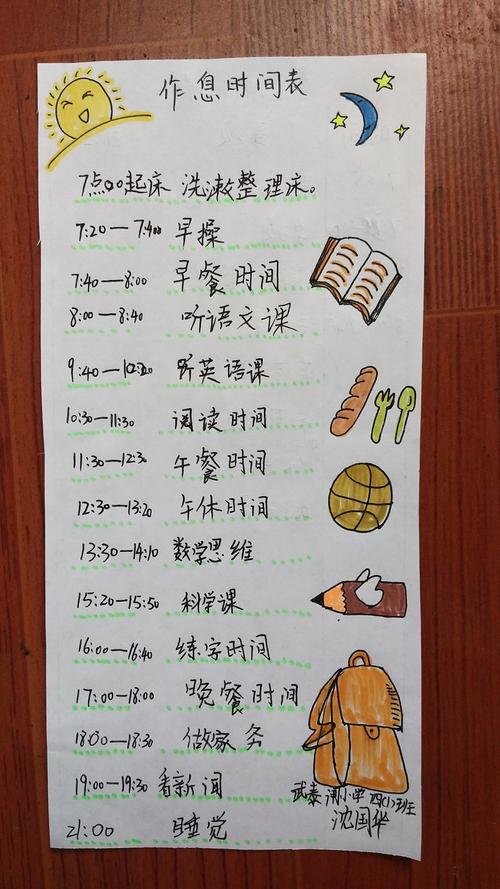 作息时间表
7点00起床 洗漱整理床。
7:20—7:400 早操
7:40—8:00 早餐时间
8:00—8:40 听语文课
9:40—10:20 听英语课
10:30—11:30 阅读时间
11:30—12:3 午餐时间
12:30—13:20 午休时间
13:30—14:10 数学思维
15:20—15:50 科学课
16:00—16:40 练字时间
17:00—18:00 晚餐时间
18:00—18:30 做家务
19:00—19:30 看新闻
21:00 睡觉
武泰闸小学四(1)班
沈国华